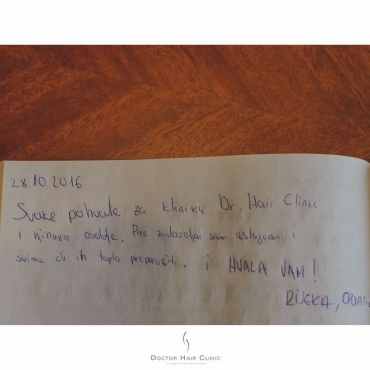 28.10.2016
Svake pohvale za kliniku Dr. Hair Clinic
i njihovo osoblje. Pre zadovoljan sam uslugom i
svima ću ih toplo preporučiti. i HVALA VAM!
RIJEKA,
DOCTOR HAIR CLINIC